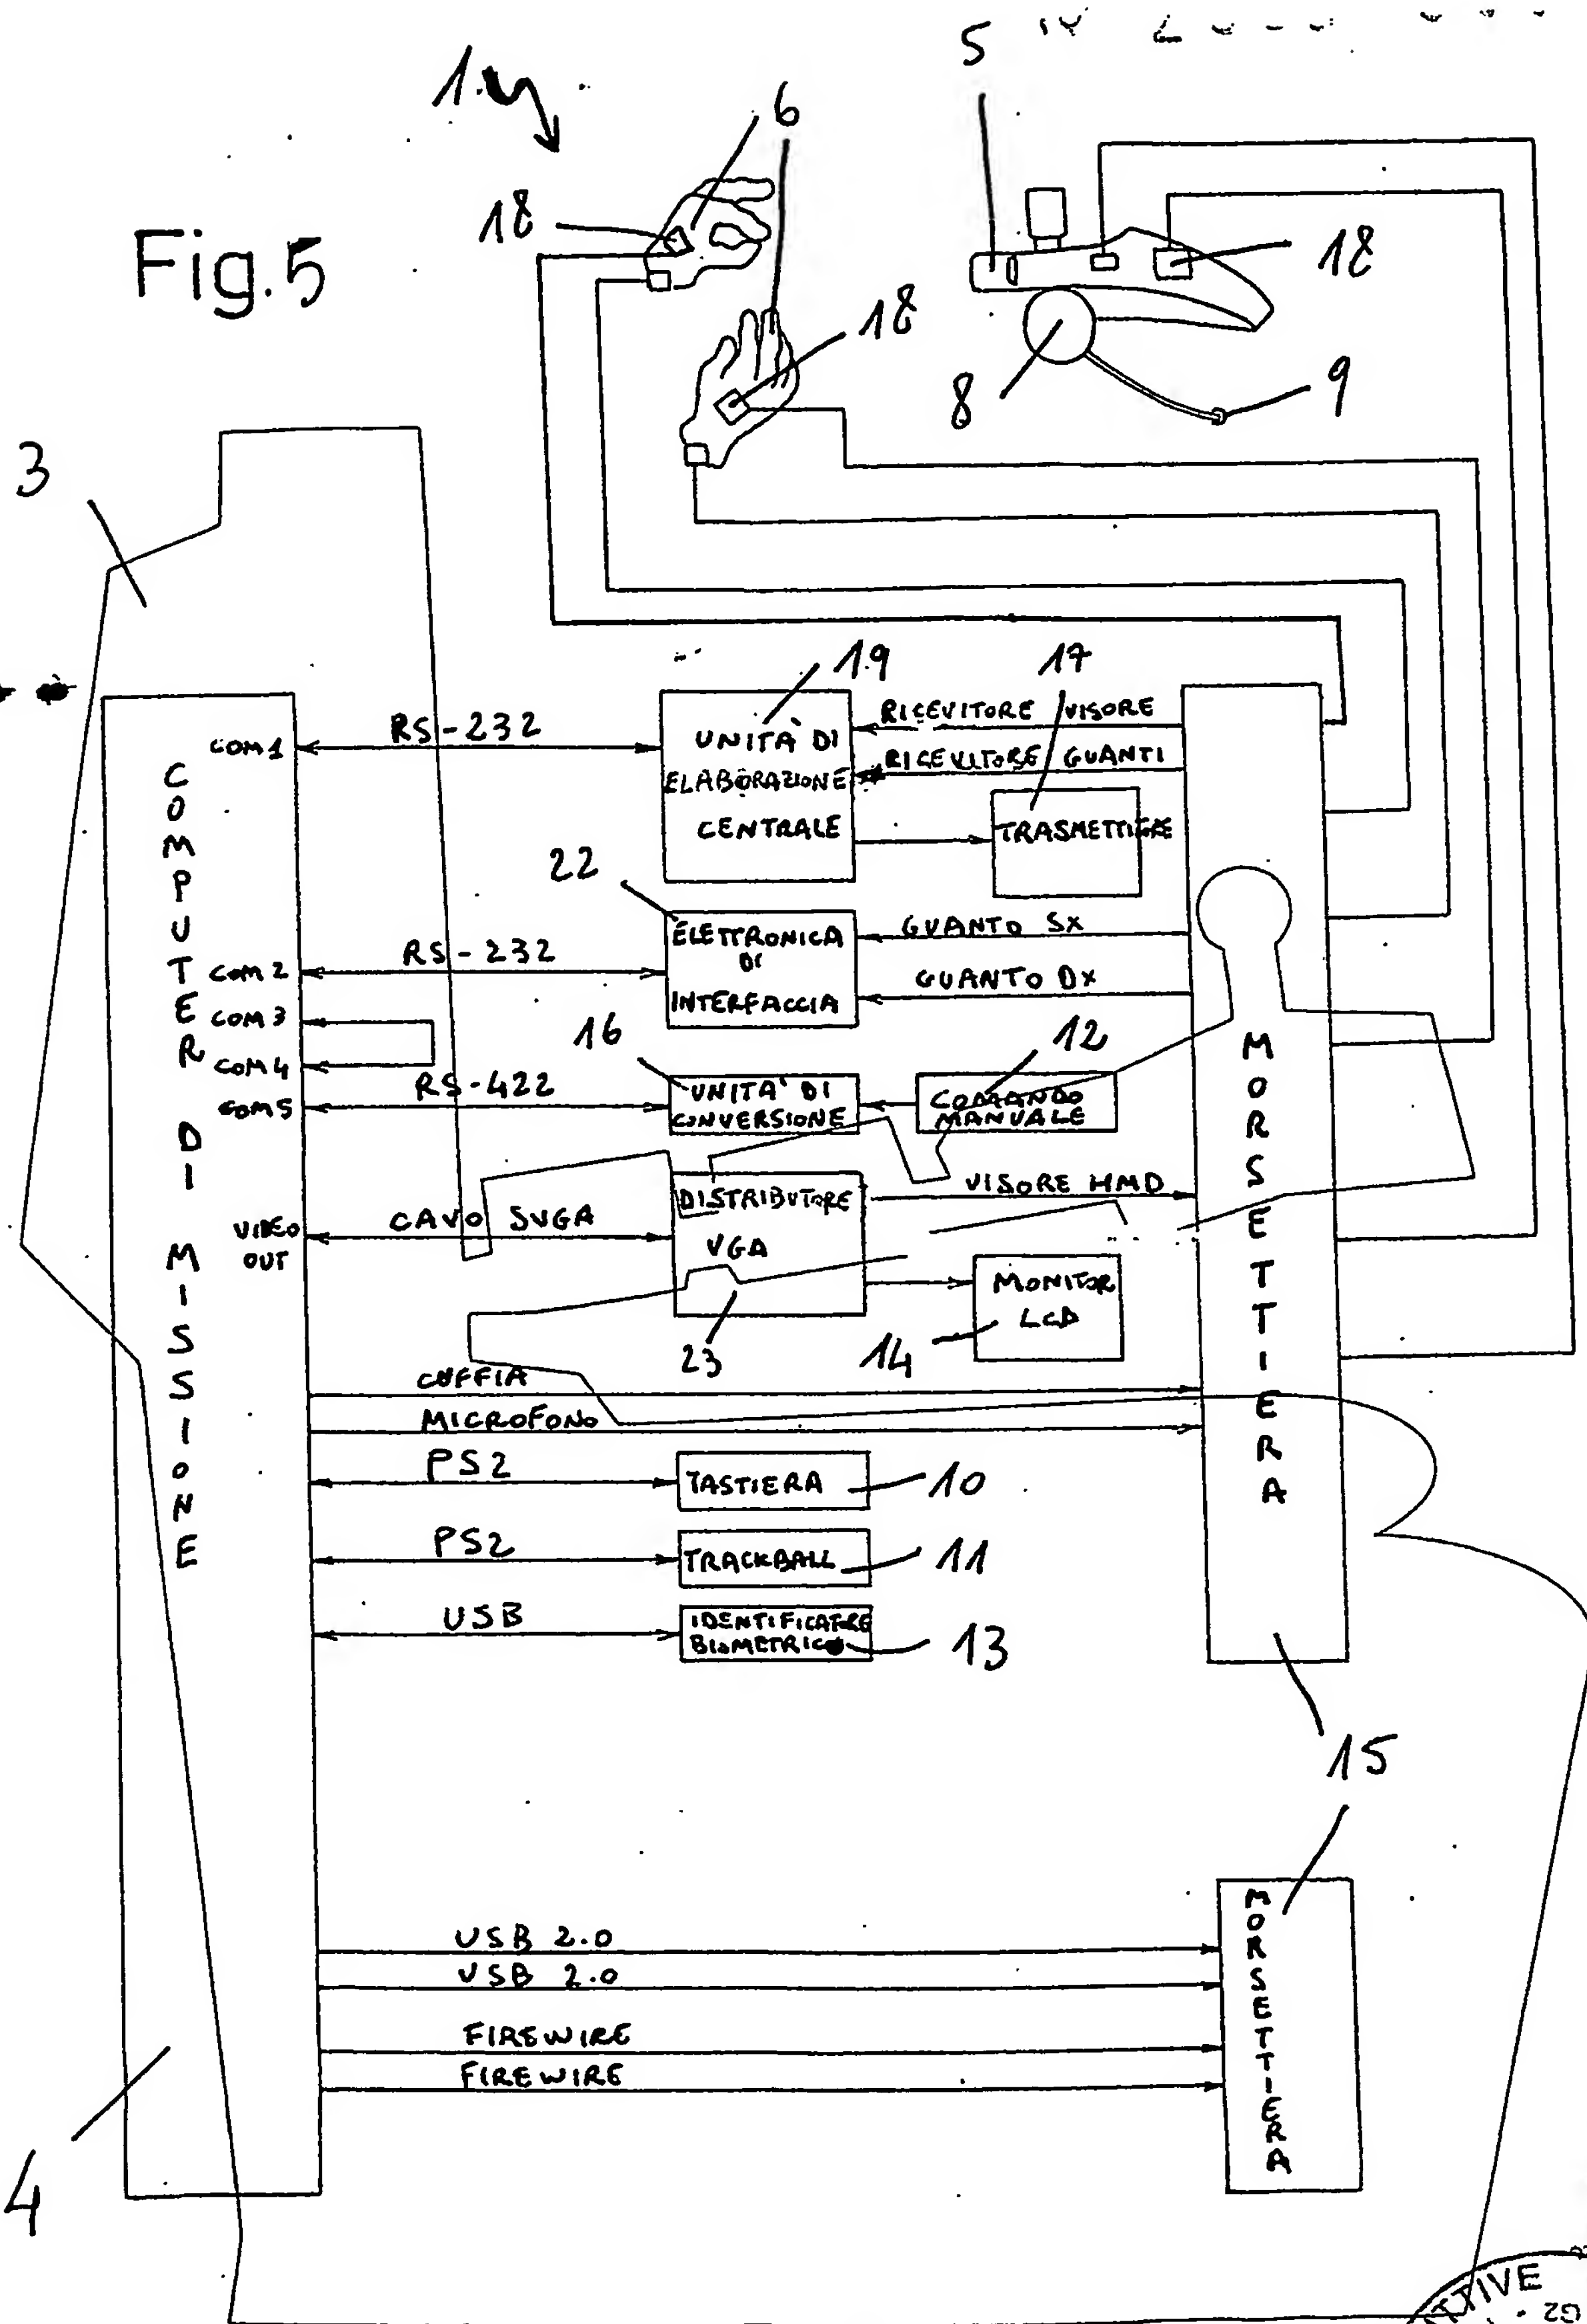 5
1
6
18
Fig.5
18
18
8
9
3
19
17
RS-232
COM1
UNITÀ DI
ELABORAZIONE
CENTRALE
RICEVITORE VISORE
RICEVITORE GUANTI
TRASMETTITORE
COMPUTER DI MISSIONE
22
RS-232
COM2
COM3
COM4
ELETTRONICA
DI
INTERFACCIA
GUANTO SX
GUANTO DX
16
12
RS-422
COM5
UNITA' DI
CONVERSIONE
COMANDO
MANUALE
MORSETTIERA
VIDEO
OUT
CAVO SVGA
DISTRIBUTORE
VGA
VISORE HMD
MONITOR
LCD
23
14
CUFFIA
MICROFONO
PS2
TASTIERA
10
PS2
TRACKBALL
11
USB
IDENTIFICATORE
BIOMETRICO
13
15
USB 2.0
USB 2.0
FIREWIRE
FIREWIRE
MORSETTIERA
4